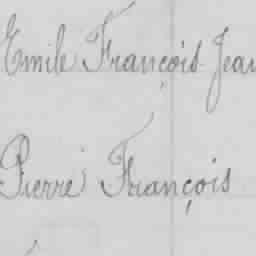 Emile François Jean
Pierre François